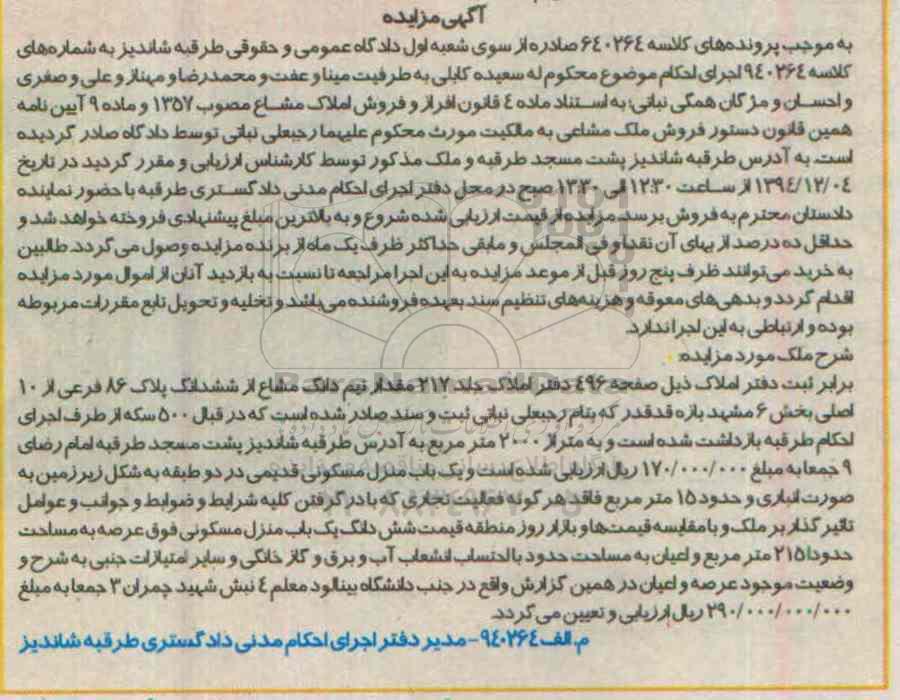 آگهی مزایده
به موجب پرونده‌های کلاسه ۶۴۰۲۶۴ صادره از سوی شعبه اول دادگاه عمومی و حقوقی طرقبه شاندیز به شماره‌های
کلاسه ۹۴۰۲۶۴ اجرای احکام موضوع محکوم له سعیده کابلی به طرفیت مینا و عفت و محمدرضا و مهناز و علی و صغری
و احسان و مژگان همگی نباتی؛ به استناد ماده ۴ قانون افراز و فروش املاک مشاع مصوب ۱۳۵۷ و ماده ۹ آیین نامه
همین قانون دستور فروش ملک مشاعی به مالکیت مورث محکوم علیهما رجبعلی نباتی توسط دادگاه صادر گردیده
است. به آدرس طرقبه شاندیز پشت مسجد طرقبه و ملک مذکور توسط کارشناس ارزیابی و مقرر گردید در تاریخ
۱۳۹۴/۱۲/۰۴ از ساعت ۱۲:۳۰ الی ۱۳:۳۰ صبح در محل دفتر اجرای احکام مدنی دادگستری طرقبه با حضور نماینده
دادستان محترم به فروش برسد. مزایده از قیمت ارزیابی شده شروع و به بالاترین مبلغ پیشنهادی فروخته خواهد شد و
حداقل ده درصد از بهای آن نقدا و فی المجلس و مابقی حداکثر ظرف یک ماه از برنده مزایده وصول می گردد. طالبین
به خرید می‌توانند ظرف پنج روز قبل از موعد مزایده به این اجرا مراجعه تا نسبت به بازدید آنان از اموال مورد مزایده
اقدام گردد و بدهی‌های معوقه و هزینه‌های تنظیم سند بعهده فروشنده می‌باشد و تخلیه و تحویل تابع مقررات مربوطه
بوده و ارتباطی به این اجرا ندارد.
شرح ملک مورد مزایده:
برابر ثبت دفتر املاک ذیل صفحه ۴۹۶ دفتر املاک جلد ۲۱۷ مقدار نیم دانگ مشاع از ششدانگ پلاک ۸۶ فرعی از ۱۰
اصلی بخش ۶ مشهد بازه قدقدر که بنام رجبعلی نباتی ثبت و سند صادر شده است که در قبال ۵۰۰ سکه از طرف اجرای
احکام طرقبه بازداشت شده است و به متراز ۲۰۰۰ متر مربع به آدرس طرقبه شاندیز پشت مسجد طرقبه امام رضای
۹ جمعا به مبلغ ۱۷۰/۰۰۰/۰۰۰ ریال ارزیابی شده است و یک باب منزل مسکونی قدیمی در دو طبقه به شکل زیرزمین به
صورت انباری و حدود ۱۵ متر مربع فاقد هر گونه فعالیت تجاری که با در گرفتن کلیه شرایط و ضوابط و جوانب و عوامل
تاثیر گذار بر ملک و با مقایسه قیمت‌ها و بازار روز منطقه قیمت شش دانگ یک باب منزل مسکونی فوق عرصه به مساحت
حدودا ۲۱۵ متر مربع و اعیان به مساحت حدود با احتساب انشعاب آب و برق و گاز خانگی و سایر امتیازات جنبی به شرح و
وضعیت موجود عرصه و اعیان در همین گزارش واقع در جنب دانشگاه بینالود معلم ۴ نبش شهید چمران ۳ جمعا به مبلغ
۲۹۰/۰۰۰/۰۰۰/۰۰۰ ریال ارزیابی و تعیین می گردد.
م.الف ۹۴۰۲۶۴ - مدیر دفتر اجرای احکام مدنی دادگستری طرقبه شاندیز